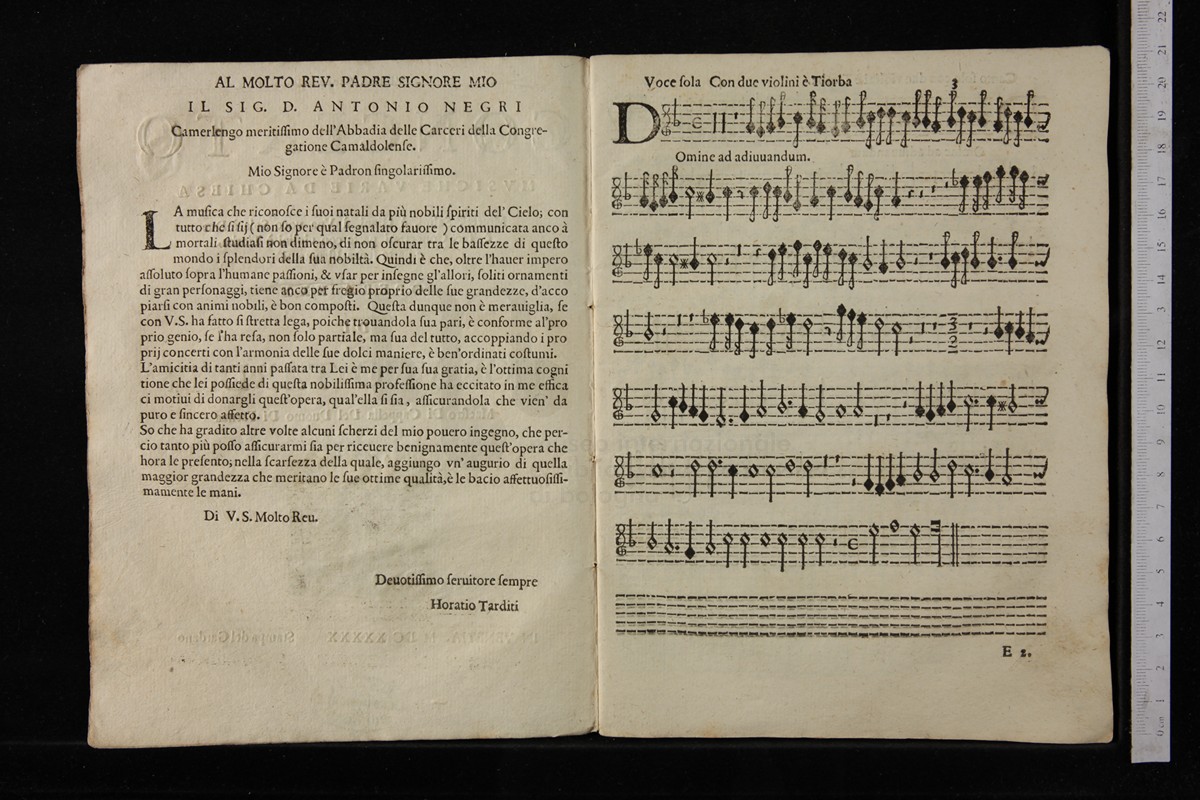 AL MOLTO REV. PADRE SIGNORE MIO
IL SIG. D. ANTONIO NEGRI
Camerlengo meritiſſimo dell'Abbadia delle Carceri della Congre-
gatione Camaldolenſe.
Mio Signore è Padron ſingolariſſimo.
LA muſica che riconoſce i ſuoi natali da più nobili ſpiriti del' Cielo; con
tutto che ſi ſij ( non ſo per qual ſegnalato fauore ) communicata anco à
mortali ſtudiaſi non dimeno, di non oſcurar tra le baſſezze di queſto
mondo i ſplendori della ſua nobiltà. Quindi è che, oltre l'hauer impero
aſſoluto ſopra l'humane paſſioni, & vſar per inſegne gl'allori, ſoliti ornamenti
di gran perſonaggi, tiene anco per fregio proprio delle ſue grandezze, d'acco
piarſi con animi nobili, è bon compoſti. Queſta dunque non è merauiglia, ſe
con V.S. ha fatto ſi ſtretta lega, poiche trouandola ſua pari, è conforme al'pro
prio genio, ſe l'ha reſa, non ſolo partiale, ma ſua del tutto, accoppiando i pro
prij concerti con l'armonia delle ſue dolci maniere, è ben'ordinati coſtumi.
L'amicitia di tanti anni paſſata tra Lei è me per ſua ſua gratia, è l'ottima cogni
tione che lei poſſiede di queſta nobiliſſima profeſſione ha eccitato in me effica
ci motiui di donargli queſt'opera, qual'ella ſi ſia, aſſicurandola che vien' da
puro e ſincero affetto.
So che ha gradito altre volte alcuni ſcherzi del mio pouero ingegno, che per-
cio tanto più poſſo aſſicurarmi ſia per riceuere benignamente queſt'opera che
hora le preſento; nella ſcarſezza della quale, aggiungo vn' augurio di quella
maggior grandezza che meritano le ſue ottime qualità, è le bacio affettuoſiſſi-
mamente le mani.
Di V. S. Molto Reu.
Deuotiſſimo ſeruitore ſempre
Horatio Tarditi
Voce ſola Con due violini è Tiorba
3
DOmine ad adiuuandum.
E 2.